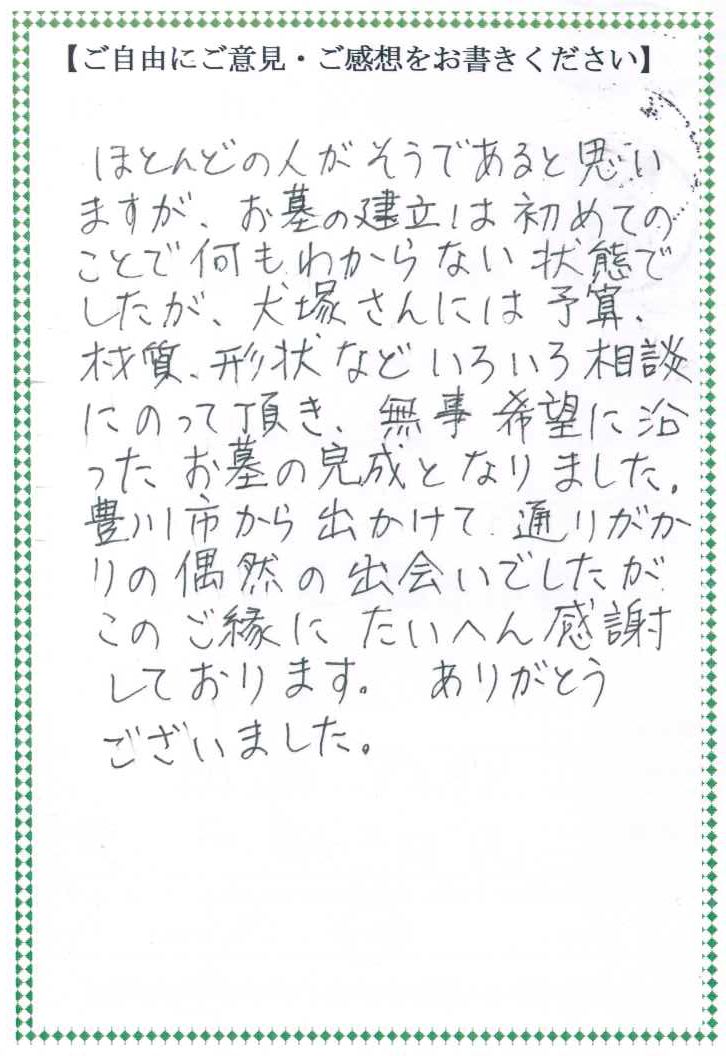 【ご自由にご意見・ご感想をお書きください】
ほとんどの人がそうであると思い
ますが、お墓の建立は初めての
ことで何もわからない状態で
したが、犬塚さんには予算、
材質、形状などいろいろ相談
にのって頂き、無事希望に沿
った お墓の完成となりました。
豊川市から出かけて 通りがか
りの偶然の出会いでしたが
このご縁に たいへん感謝
しております。 ありがとう
ございました。